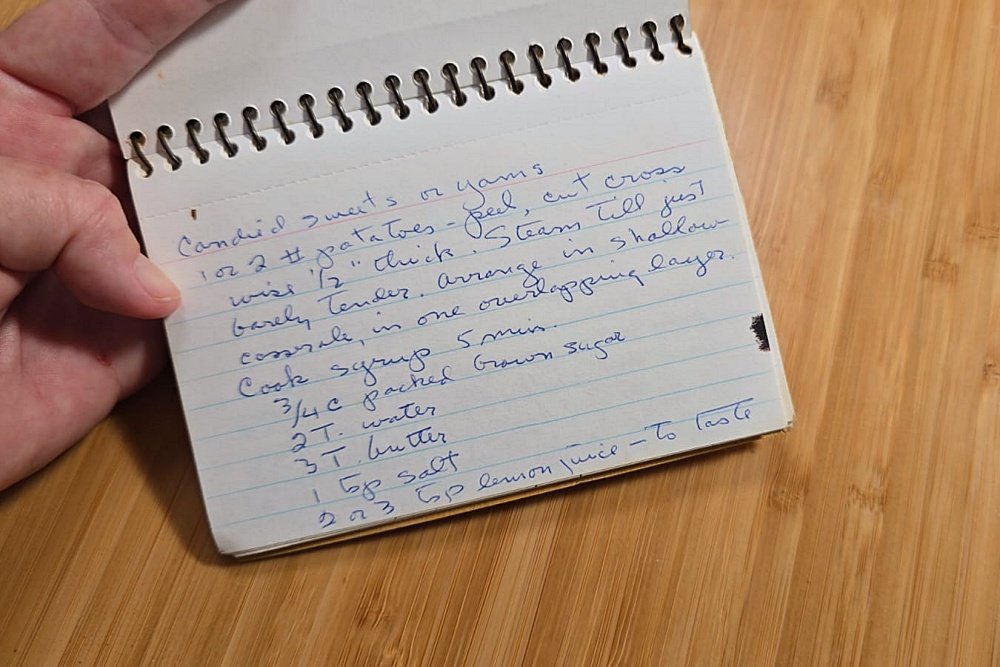 Candied sweets or yams
1 or 2 # potatoes - peel, cut cross
wise 1/2" thick. Steam till just
barely tender. arrange in shallow
casserole, in one overlapping layer.
Cook syrup 5 min.
3/4 c packed brown sugar
2 T. water
3 T. butter
1 tsp salt
2 or 3 tsp lemon juice - to taste